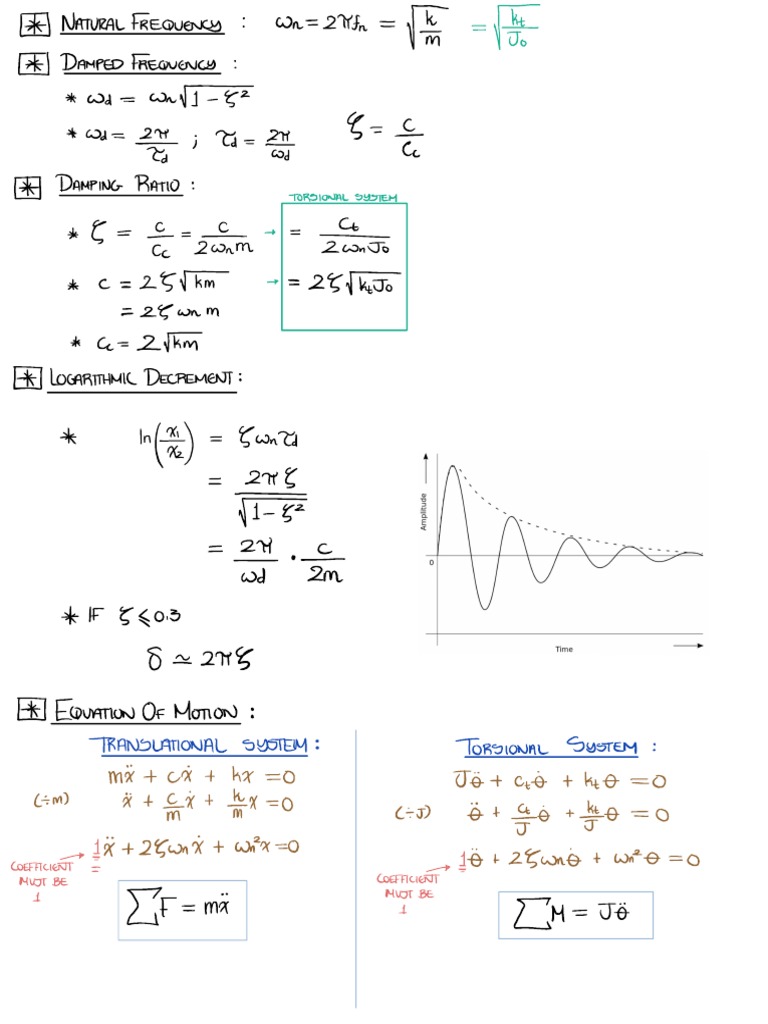 * NATURAL FREQUENCY : ωn = 2πfn = √(k/m) = √(kt/Jo)
* DAMPED FREQUENCY :
* ωd = ωn√(1 - ζ²)
* ωd = 2π/τd ; τd = 2π/ωd ζ = c/cc
* DAMPING RATIO :
TORSIONAL SYSTEM
* ζ = c/cc = c/(2ωnm) → = ct/(2ωnJo)
* c = 2ζ√(km) → = 2ζ√(ktJo)
= 2ζωnm
* cc = 2√(km)
* LOGARITHMIC DECREMENT :
* ln(x1/x2) = ζωnτd
= 2πζ/√(1-ζ²)
= 2π/ωd · c/2m
Amplitude
0
Time
* IF ζ ⩽ 0.3
δ ≃ 2πζ
* EQUATION OF MOTION :
TRANSLATIONAL SYSTEM :
mẍ + cẋ + kx = 0
(÷m) ẍ + c/m ẋ + k/m x = 0
1ẍ + 2ζωnẋ + ωn²x = 0
COEFFICIENT
MUST BE
1
∑F = mẍ
TORSIONAL SYSTEM :
Jθ̈ + ctθ̇ + ktθ = 0
(÷J) θ̈ + ct/J θ̇ + kt/J θ = 0
1θ̈ + 2ζωnθ̇ + ωn²θ = 0
COEFFICIENT
MUST BE
1
∑M = Jθ̈